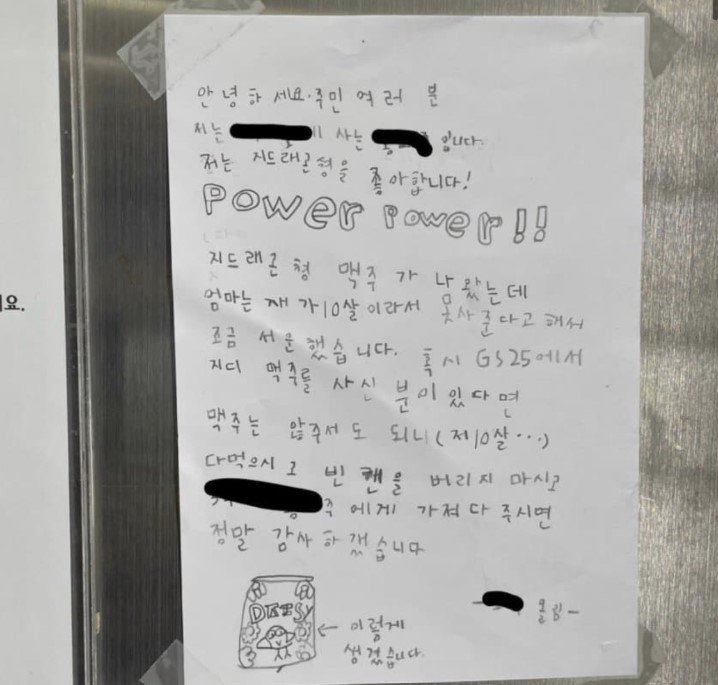 안녕하세요. 주민 여러분
저는 사는 입니다.
저는 지드래곤형을 좋아합니다!
Power Power!!
지드래곤 형 맥주가 나왔는데
엄마는 제가 10살이라서 못사준다고 해서
조금 서운했습니다. 혹시 GS25에서
지디 맥주를 사신 분이 있다면
맥주는 않주서도 되니(저10살...)
다먹으시고 빈 캔을 버리지 마시고
주에게 가져다 주시면
정말 감사하겠습니다
DAISY
← 이렇게
생겼습니다.
- 올림 -
요.